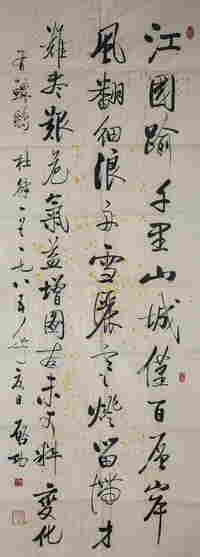 江國踰千里山城僅百層岸
風翻夕浪舟雪灑寒燈留滯才
難盡艱危氣益增圖南未可料變化
有鯤鵬 杜 一九七八年 日 啟功